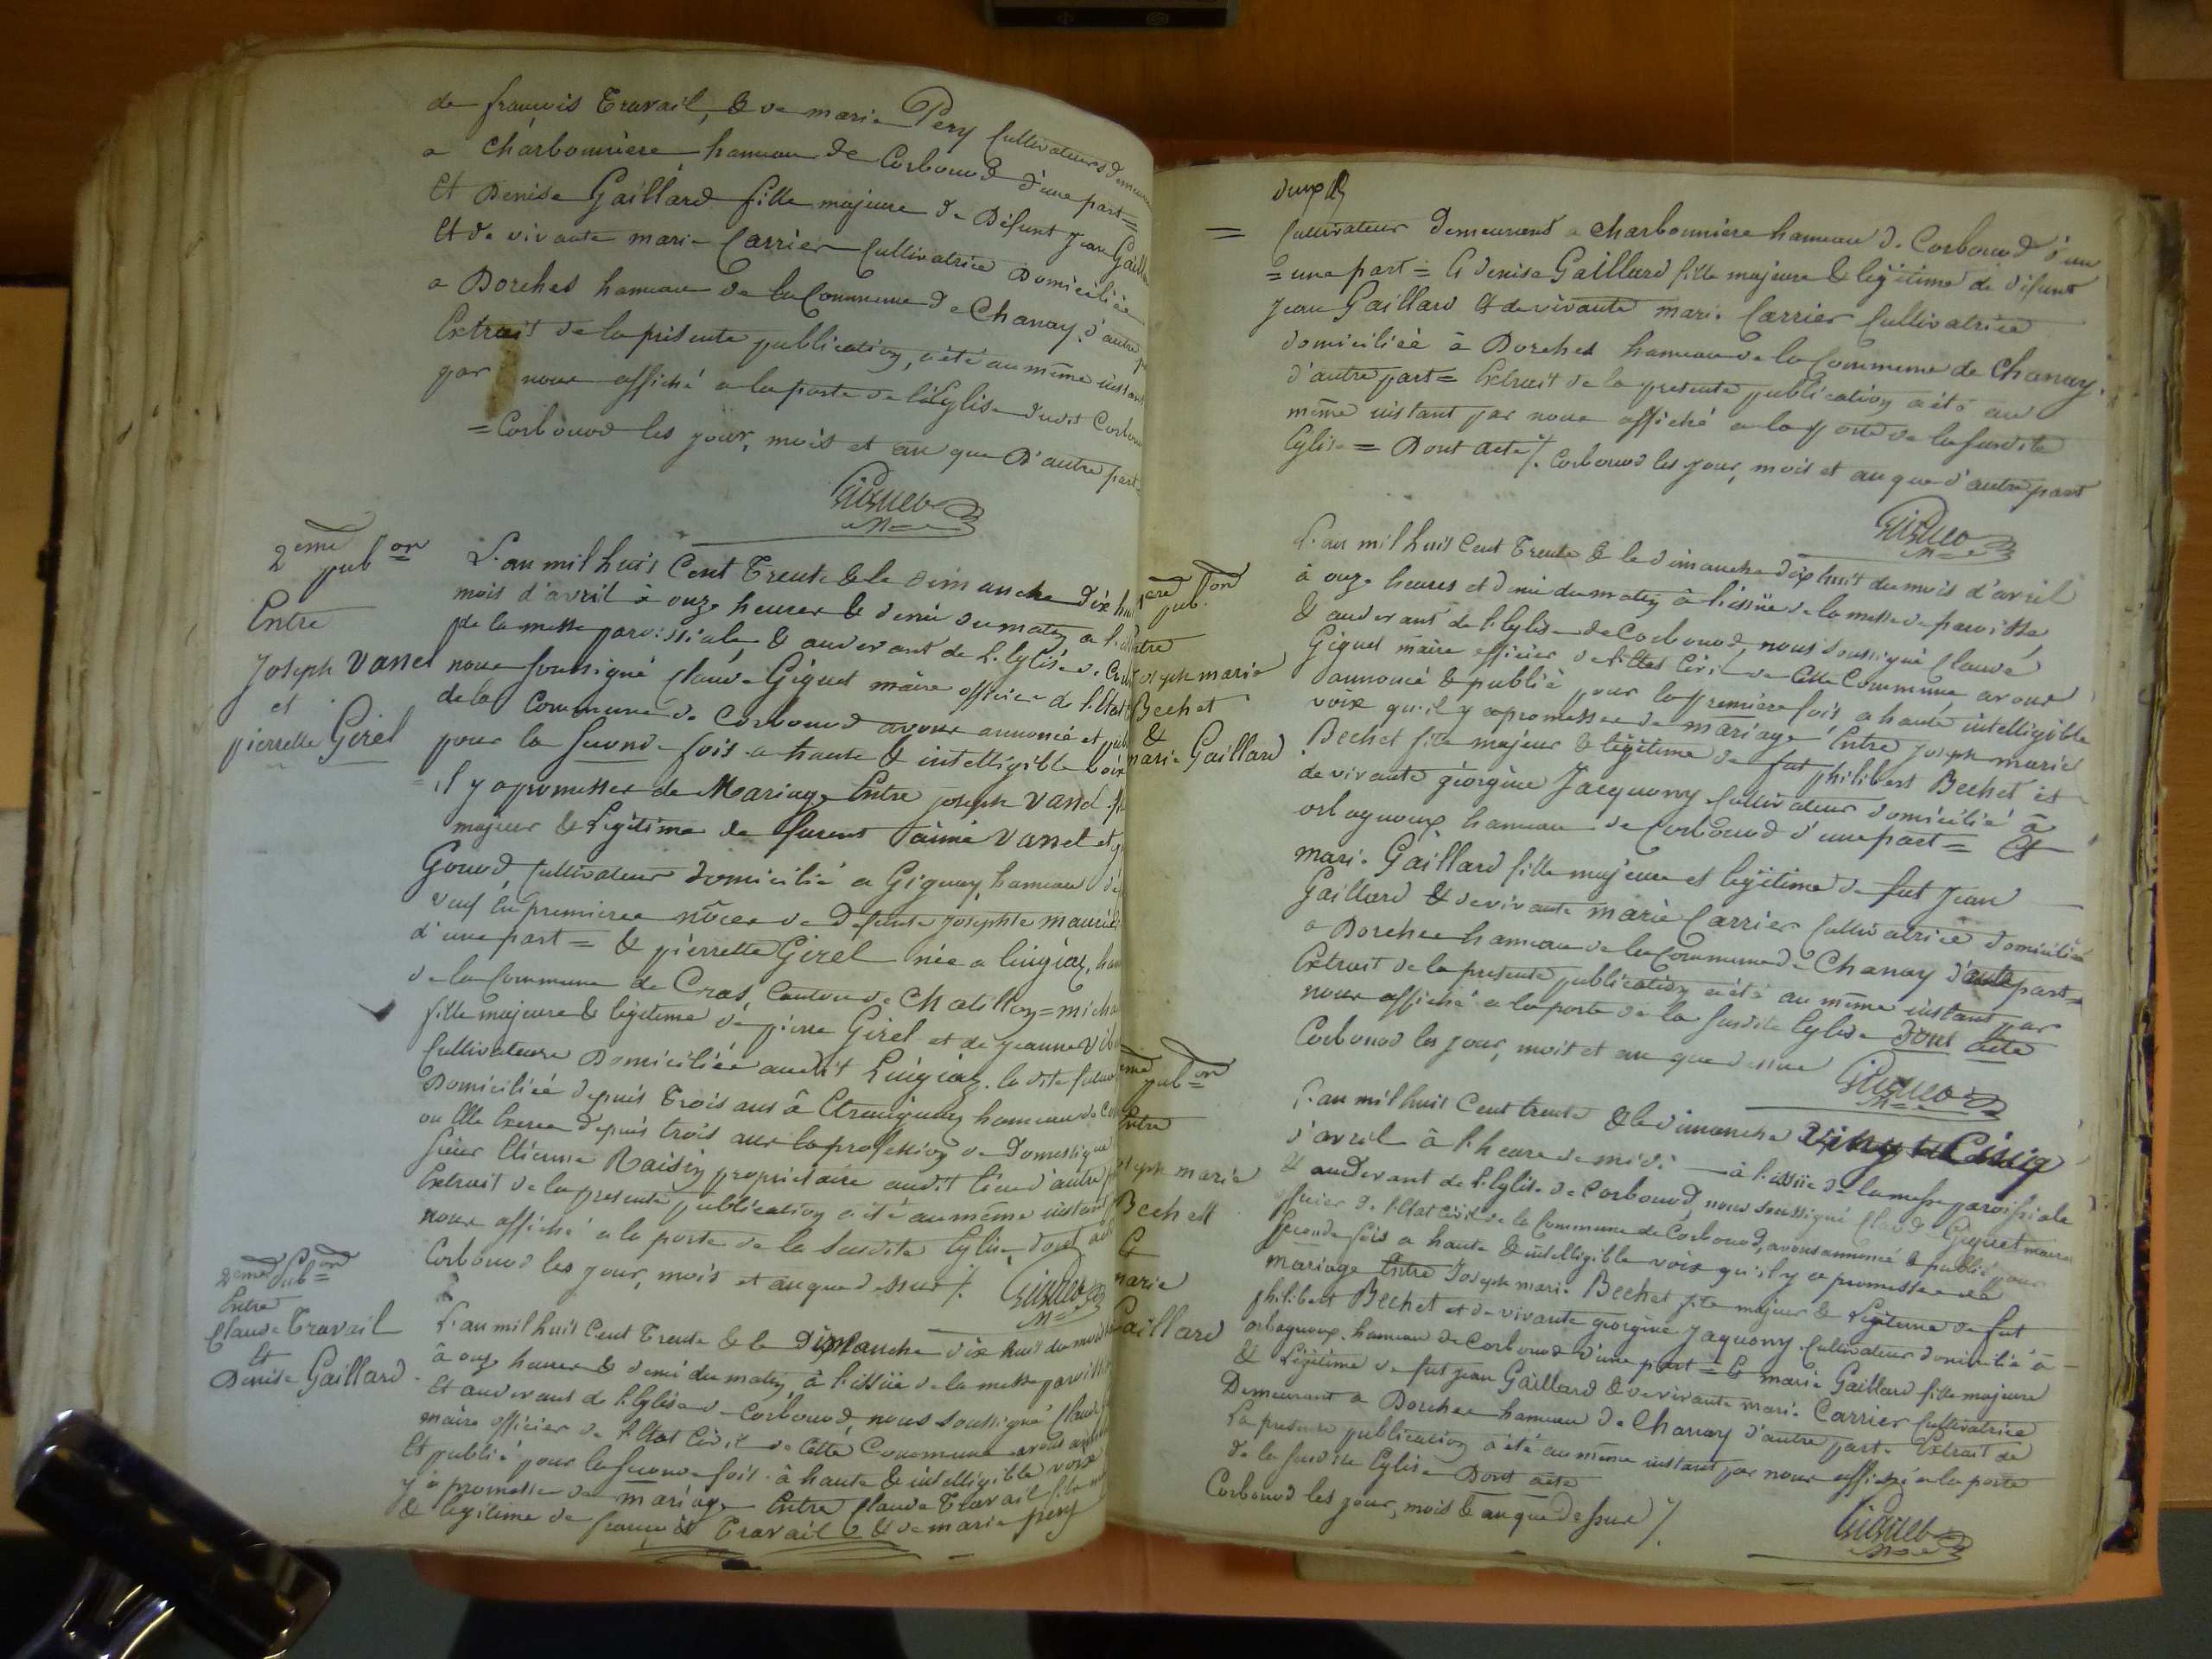 de françois Travail, & de marie Pery Cultivateurs
a charbonnière hameau de Corbonod d'une part =
Et Denise Gaillard fille majeure de Défunt Jean
Et de vivante marie Carrier Cultivatrice Domiciliée
a Dorches hameau de la Commune de Chanay, d'autre
Extrait de la présente publication, a été au même instant
par nous affiché a la porte de l'Eglise dudit
= Corbonod les jour, mois et an que D'autre part
2eme pub.on
Entre
Joseph Vanel
et
pierrette Girel
L'an mil huit Cent Trente & le dimanche Dix
mois d'avril à onze heures & demi du matin a
de la messe paroissiale, & audevant de l'Eglise de
nous soussigné Claude Giguet maire officier de l'Etat
de la Commune de Corbonod avons annoncé et
pour la seconde fois a haute & intelligible voix
= il y a promesses de Mariage Entre joseph Vanel
majeur & Légitime de furent aimé Vanel et
Gonod Cultivateur domicilié a Gignay hameau
veuf En premieres nôces de Défunte josephte
d'une part = & pierrette Girel née a
de la Commune de Cras, Canton de Chatillon =
fille majeure & légitime de pierre Girel et de jeanne
Cultivateurs Domiciliés audit
Domiciliée depuis Trois ans à hameau de
ou Elle Exerce depuis trois ans la profession de Domestique
sieur Etienne Raisin proprietaire audit lieu d'autre
Extrait de la presente publication a été au même instant
nous affiché a la porte de la susdite Eglise, dont
Corbonod les jour, mois et an que dessus /.
2eme pub.on
Entre
Claude Travail
et
Denise Gaillard
L'an mil huit Cent Trente & le Dimanche dix huit du mois
à onze heures & demi du matin, à l'issüe de la messe
Et audevant de l'Eglise de Corbonod nous soussigné
maire officier de l'Etat Civil de Cette Commune avons
Et publié pour la seconde fois à haute & intelligible voix
y a promesses de mariage Entre Claude Travail
& légitime de françois Travail & de marie pery
= Cultivateur Demeurant a charbonnière hameau de Corbonod d'un
= une part = & denise Gaillard fille majeure & légitime de défunt
Jean Gaillard & de vivante marie Carrier Cultivatrice
domiciliée à Dorches hameau de la Commune de Chanay.
d'autre part = Extrait de la presente publication a été au
même instant par nous affiché a la porte de la susdite
Eglise = Dont acte /. Corbonod les jour, mois et an que d'autre part
pub.on
Joseph marie
Bechet
&
marie Gaillard
L'an mil huit Cent Trente & le dimanche dix huit du mois d'avril
à onze heures et demi du matin à l'issüe de la messe de paroisse
& audevant de l'Eglise de Corbonod, nous soussigné Claude
Giguet maire officier de l'Etat Civil de Cette Commune, avons
annoncé & publié pour la premiere fois a haute intelligible
voix qu'il y a promesses de mariage Entre Joseph marie
Bechet fils majeur & légitime de fut philibert Bechet et
de vivante géorgine Jacquony Cultivateur domicilié à
orbagnoux hameau de Corbonod d'une part = Et
marie Gaillard fille majeure et légitime de fut Jean
Gaillard & de vivante marie Carrier Cultivatrice domiciliée
a Dorches hameau de la Commune de Chanay d'autre part =
Extrait de la presente publication a été au même instant par
nous affiché a la porte de la susdite Eglise dont acte
Corbonod les jour, mois et an que dessus
pub.on
Entre
marie
Bechet
&
marie
Gaillard
L'an mil huit Cent trente & le dimanche
d'avril à l'heure de midi à l'issüe de la messe paroissiale
& audevant de l'Eglise de Corbonod, nous soussigné Claude Giguet maire
officier de l'Etat Civil de la Commune de Corbonod, avons annoncé & publié pour
seconde fois a haute & intelligible voix qu'il y a promesses de
mariage Entre Joseph marie Bechet fils majeur & Légitime de fut
philibert Bechet et de vivante giorgine Jaquony Cultivateur domicilié à
orbagnoux hameau de Corbonod d'une part = & marie Gaillard fille majeure
& Légitime de fut jean Gaillard & de vivante marie Carrier Cultivatrice
Demeurant a Dorches hameau de Chanay d'autre part. Extrait de
La presente publication a été au même instant par nous affiché a la porte
de la susdite Eglise Dont acte
Corbonod les jour, mois & an que Dessus /.